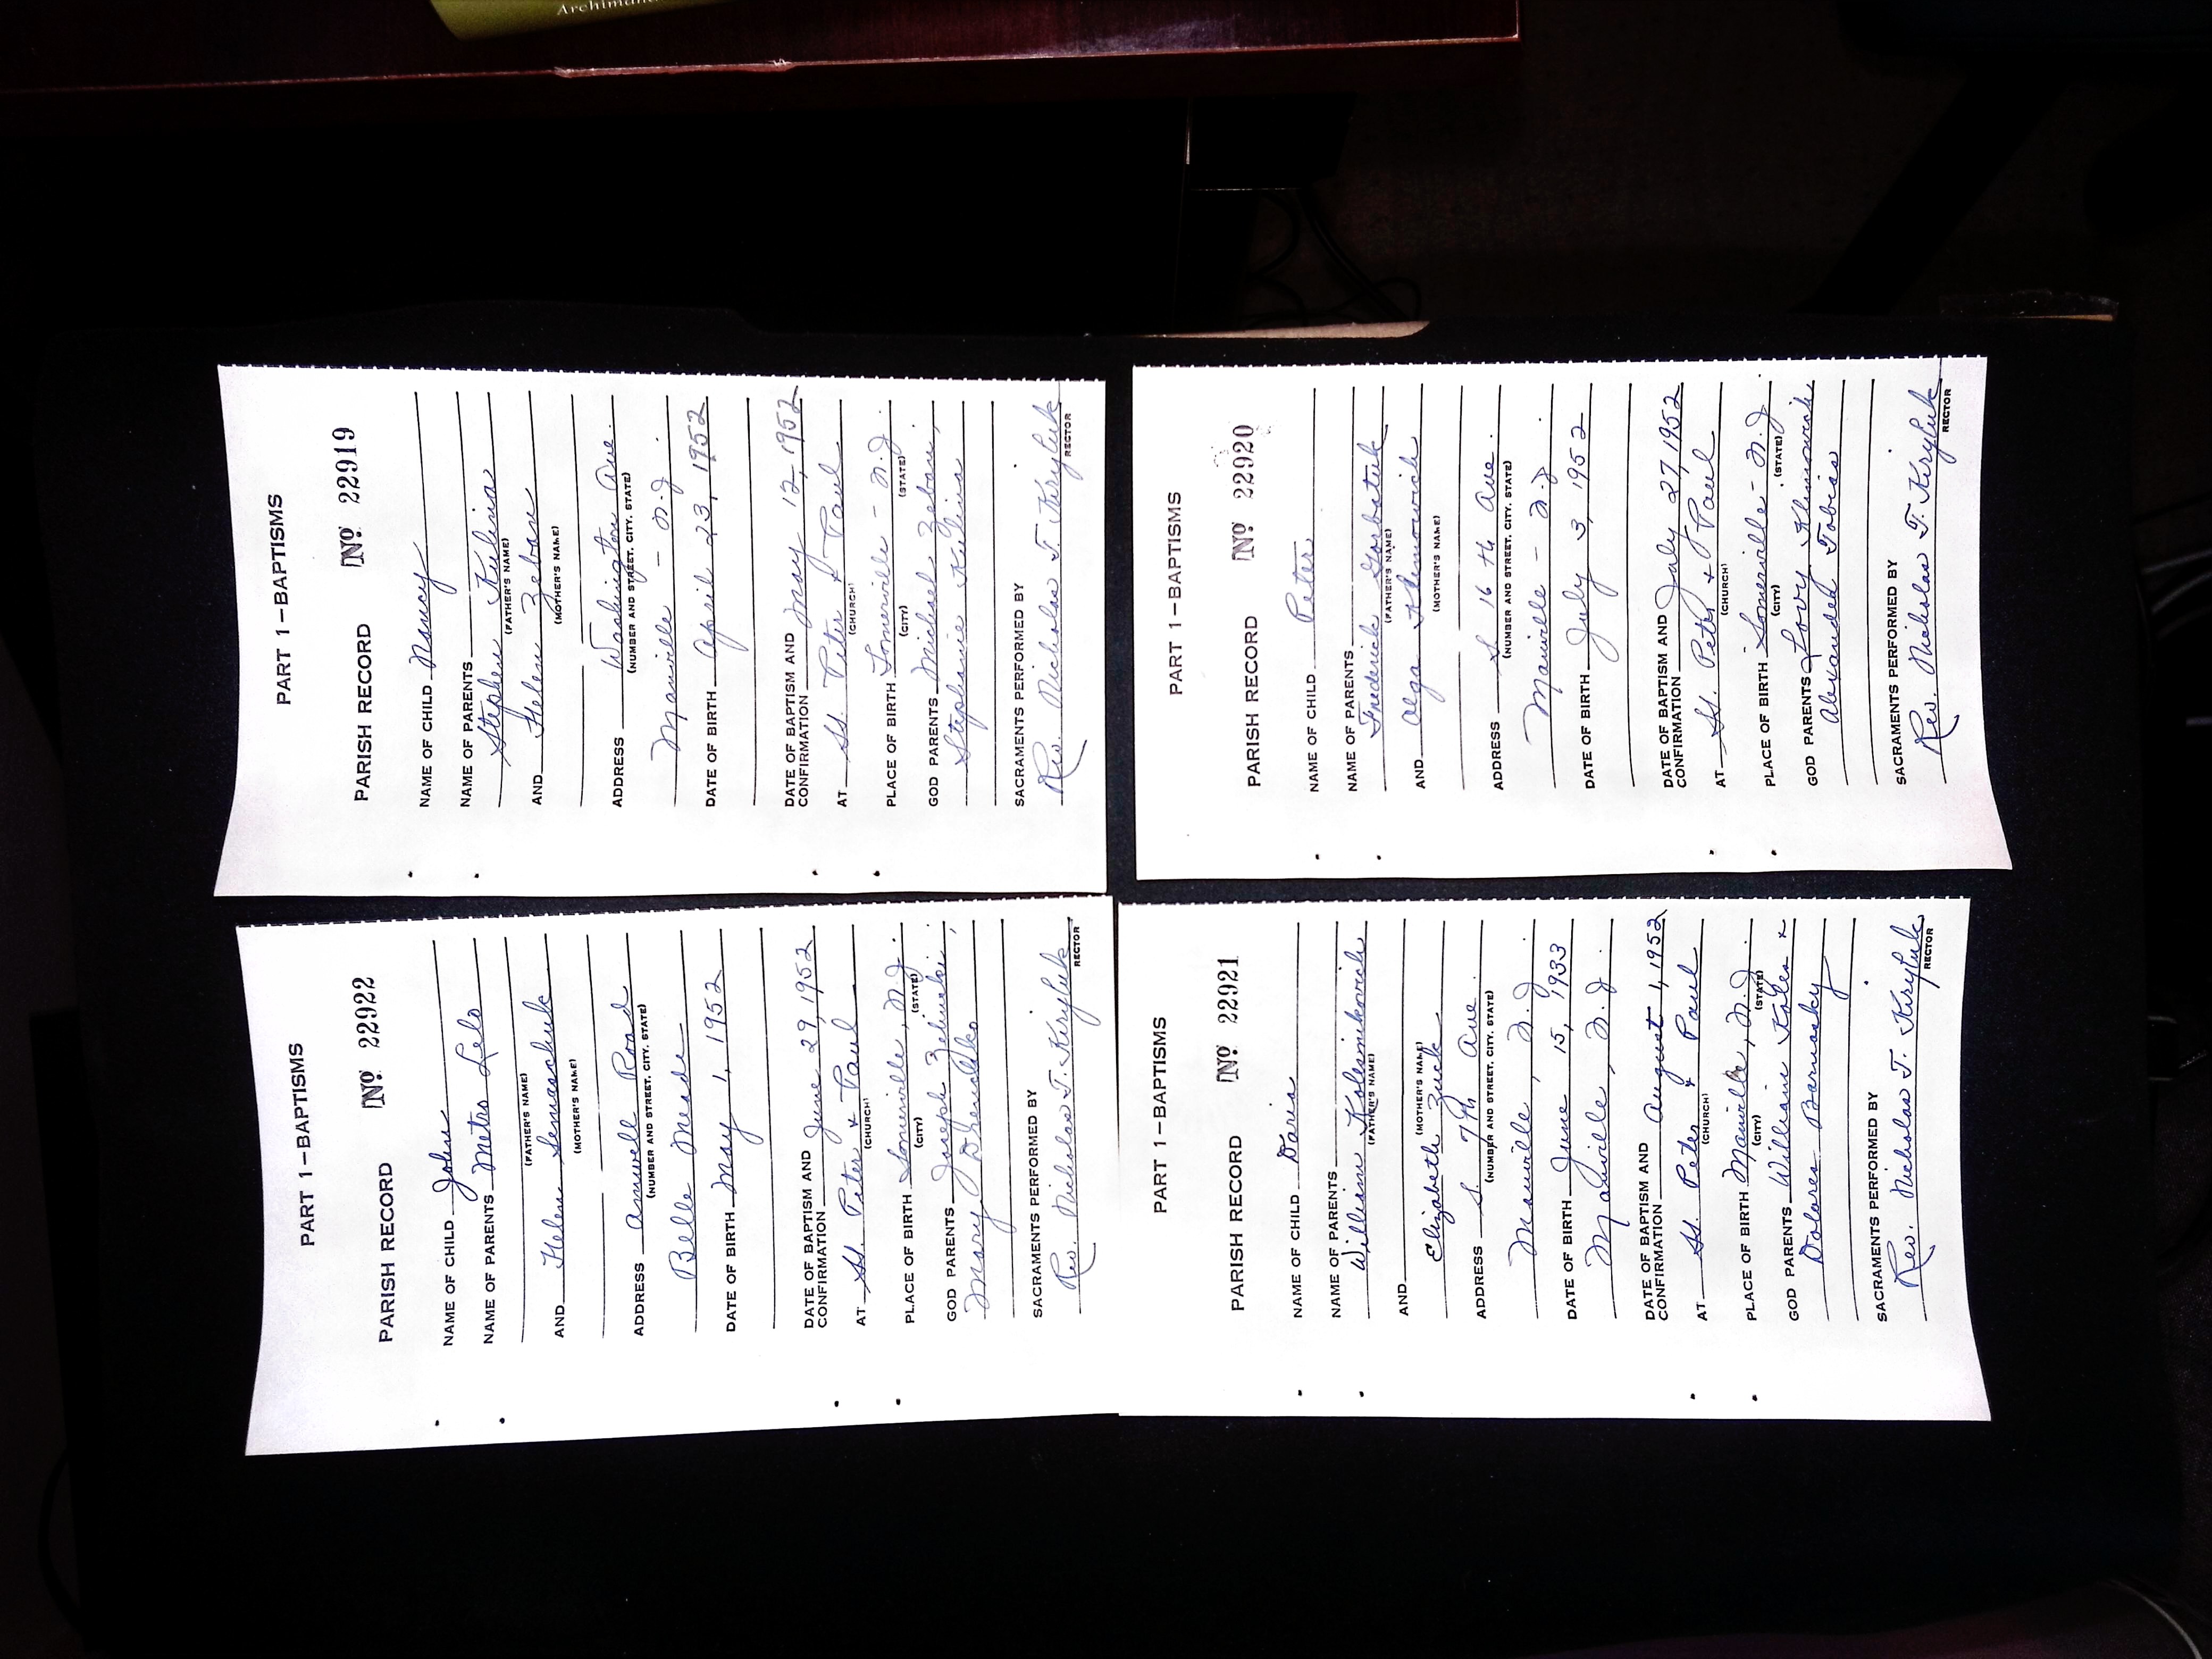 PART 1—BAPTISMS
PARISH RECORD No 22922
NAME OF CHILD John
NAME OF PARENTS Metro Lelo
(FATHER'S NAME)
AND Helen Semaschuk
(MOTHER'S NAME)
ADDRESS Amwell Road
(NUMBER AND STREET, CITY, STATE)
Belle Meade
DATE OF BIRTH May 1, 1952
DATE OF BAPTISM AND
CONFIRMATION June 29, 1952
AT SS. Peter & Paul
(CHURCH)
PLACE OF BIRTH Somerville, N.J.
(CITY) (STATE)
GOD PARENTS Joseph Zelinski,
Mary
SACRAMENTS PERFORMED BY
Rev. Nicholas T. Kiryluk
RECTOR
PART 1—BAPTISMS
PARISH RECORD No 22919
NAME OF CHILD Nancy
NAME OF PARENTS
Stephen Kulina
(FATHER'S NAME)
AND Helen Zeban
(MOTHER'S NAME)
ADDRESS Washington Ave.
(NUMBER AND STREET, CITY, STATE)
Manville - N.J.
DATE OF BIRTH April 23, 1952
DATE OF BAPTISM AND
CONFIRMATION May 12, 1952
AT SS. Peter & Paul
(CHURCH)
PLACE OF BIRTH Somerville - N.J.
(CITY) (STATE)
GOD PARENTS Michael Zeban,
Stephanie Kulina
SACRAMENTS PERFORMED BY
Rev. Nicholas T. Kiryluk
RECTOR
PART 1—BAPTISMS
PARISH RECORD No 22921
NAME OF CHILD Daria
NAME OF PARENTS
William Kolesnikovich
(FATHER'S NAME)
AND
(MOTHER'S NAME)
Elizabeth Zuck
ADDRESS S. 7th Ave.
(NUMBER AND STREET, CITY, STATE)
Manville, N.J.
DATE OF BIRTH June 15, 1933
Manville, N.J.
DATE OF BAPTISM AND
CONFIRMATION August 1, 1952
AT SS. Peter & Paul
(CHURCH)
PLACE OF BIRTH Manville, N.J.
(CITY) (STATE)
GOD PARENTS William Koles &
Dolores Barnosky
SACRAMENTS PERFORMED BY
Rev. Nicholas T. Kiryluk
RECTOR
PART 1—BAPTISMS
PARISH RECORD No 22920
NAME OF CHILD Peter
NAME OF PARENTS
Frederick Gorbatuk
(FATHER'S NAME)
AND Olga Klimowich
(MOTHER'S NAME)
ADDRESS S. 16th Ave.
(NUMBER AND STREET, CITY, STATE)
Manville - N.J.
DATE OF BIRTH July 3, 1952
DATE OF BAPTISM AND
CONFIRMATION July 27, 1952
AT SS. Peter & Paul
(CHURCH)
PLACE OF BIRTH Somerville - N.J.
(CITY) (STATE)
GOD PARENTS Lovy Klimowich
Alexander Tobias
SACRAMENTS PERFORMED BY
Rev. Nicholas T. Kiryluk
RECTOR